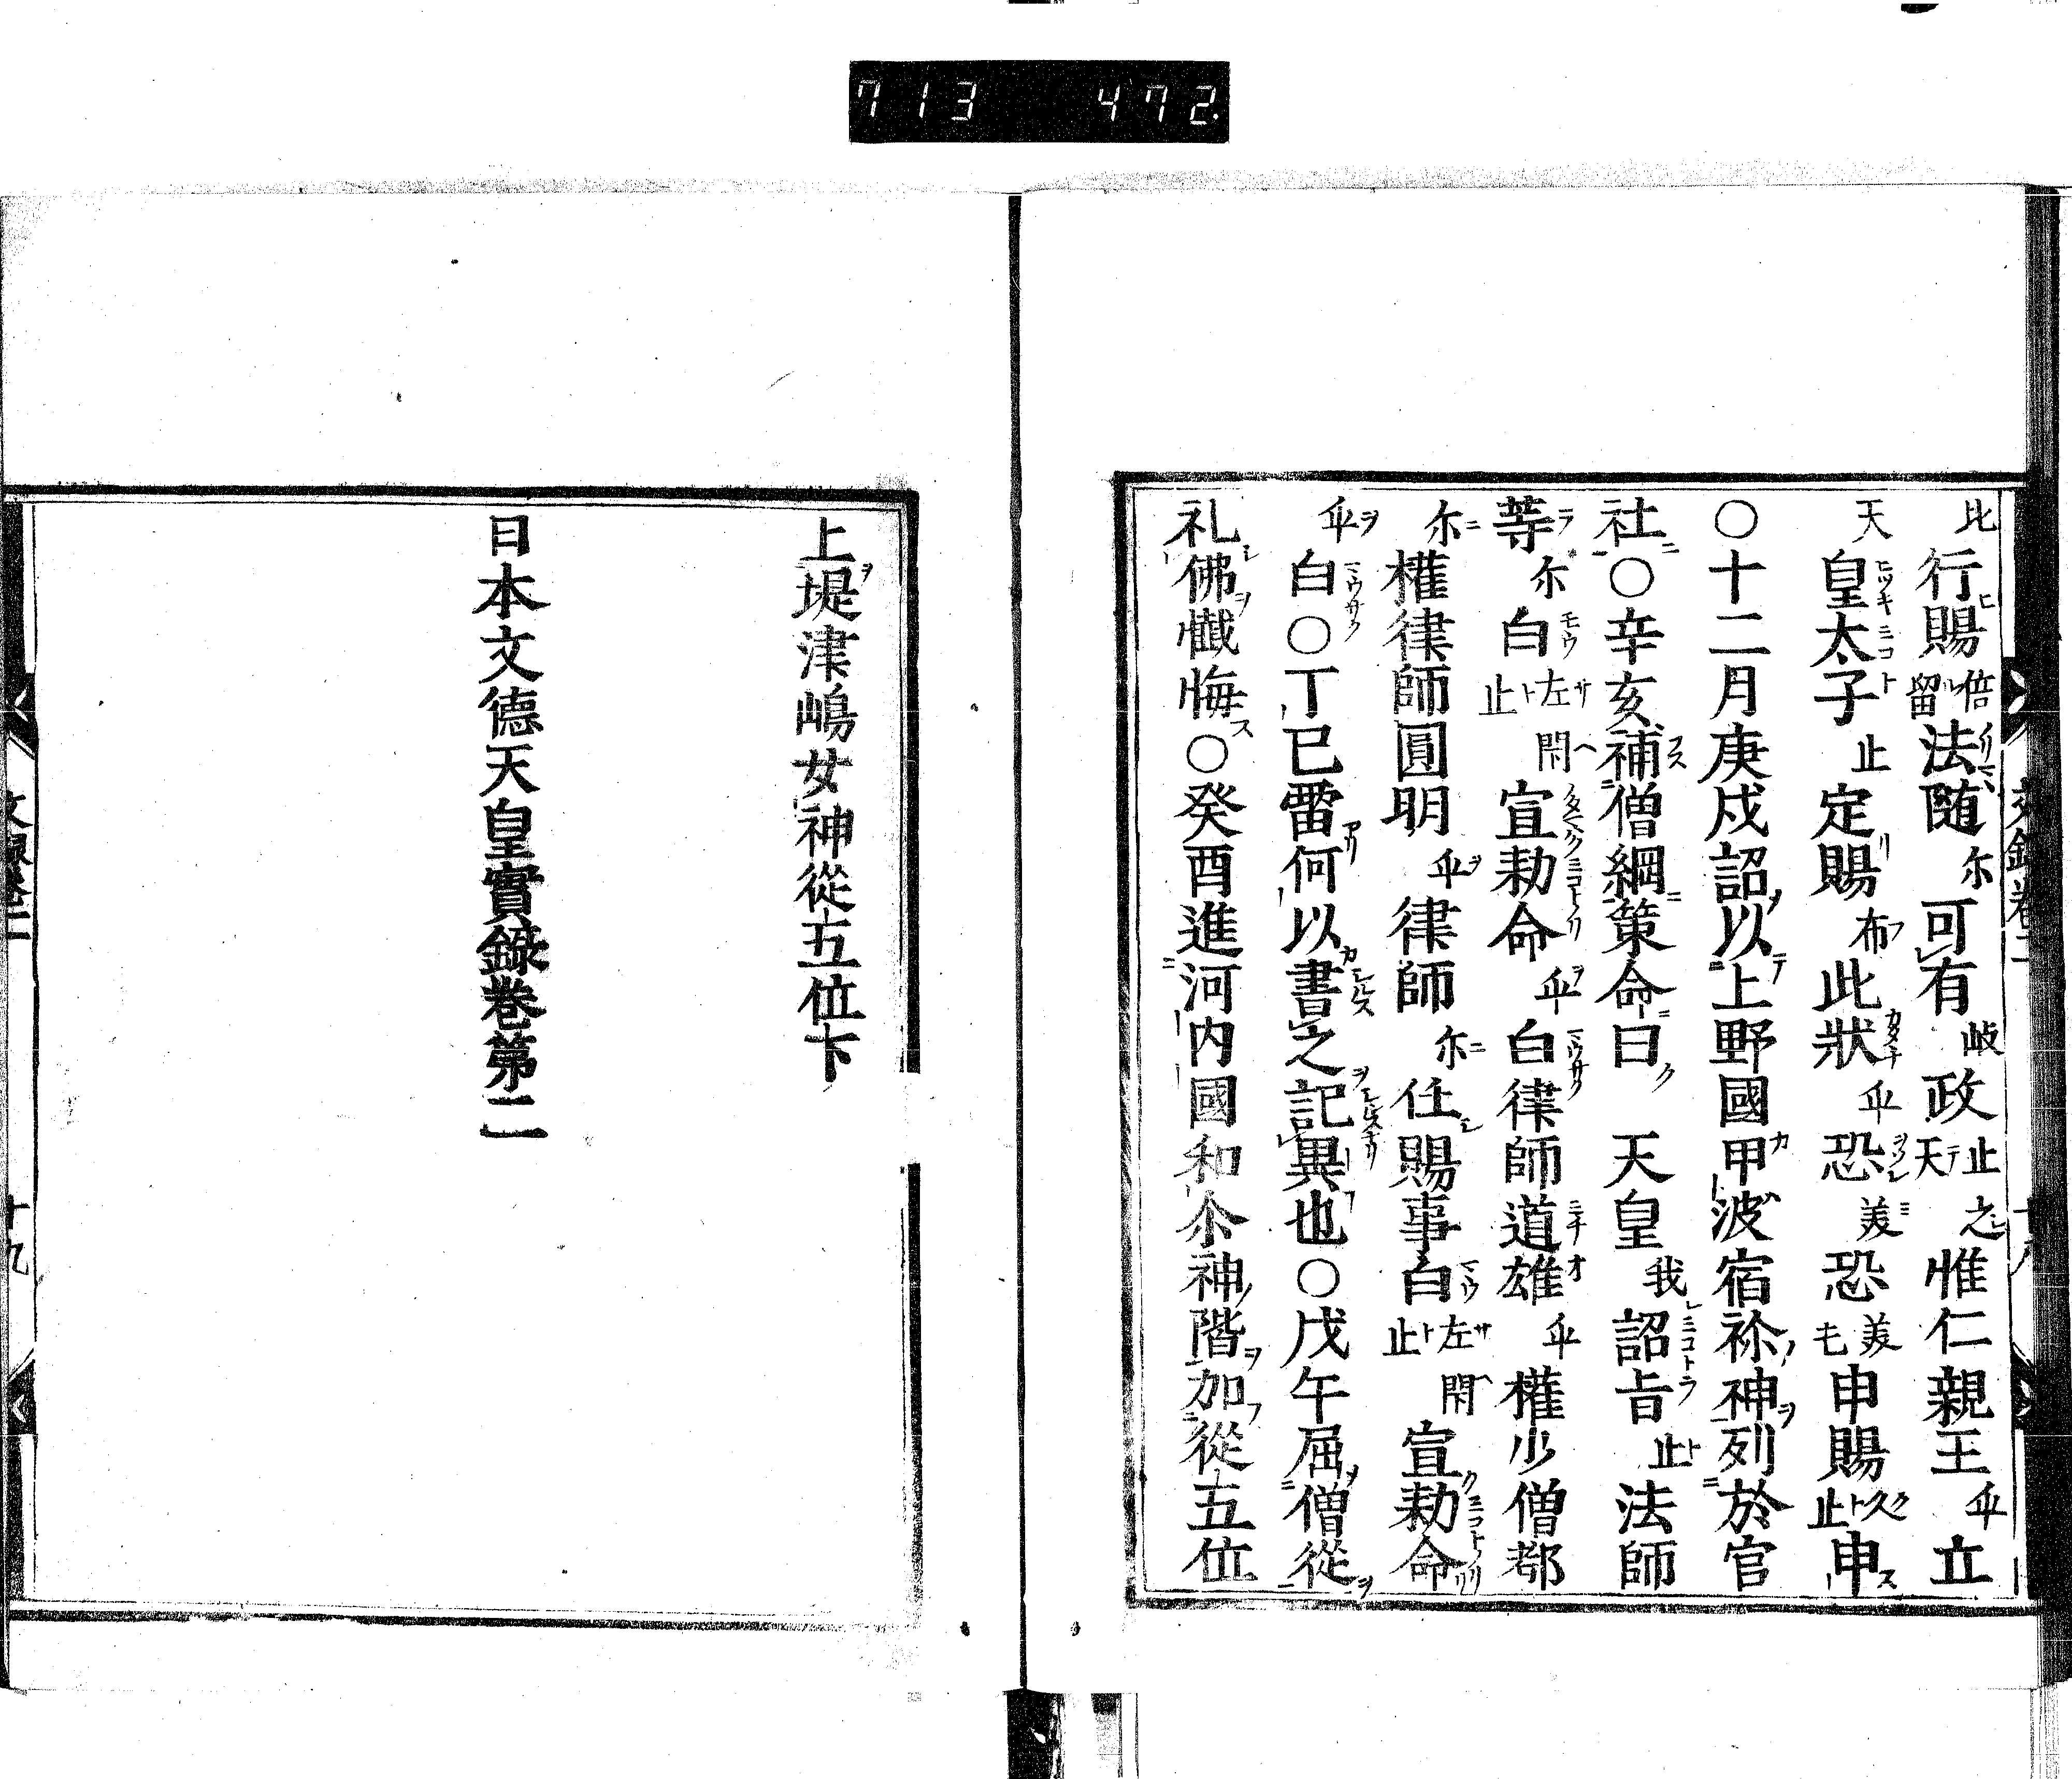 713 472
比行賜倍留法随尓可有岐政止天之惟仁親王乎立
天皇太子止定賜布此狀乎恐美恐美毛申賜久止申
○十二月庚戍詔以上野國甲波宿祢神列於官
社○辛亥補僧綱策命曰天皇我詔旨止法師
等尓白左止閇宣勅命乎白律師道雄乎權少僧都
尓權律師圓明乎律師尓任賜事白左止閇宣勅命
乎白○丁巳雷何以書之記異也○戊午屈僧從
礼佛懺悔○癸酉進河内國和尒神階加從五位
上堤津嶋女神從五位下
日本文德天皇實錄卷第二
十九